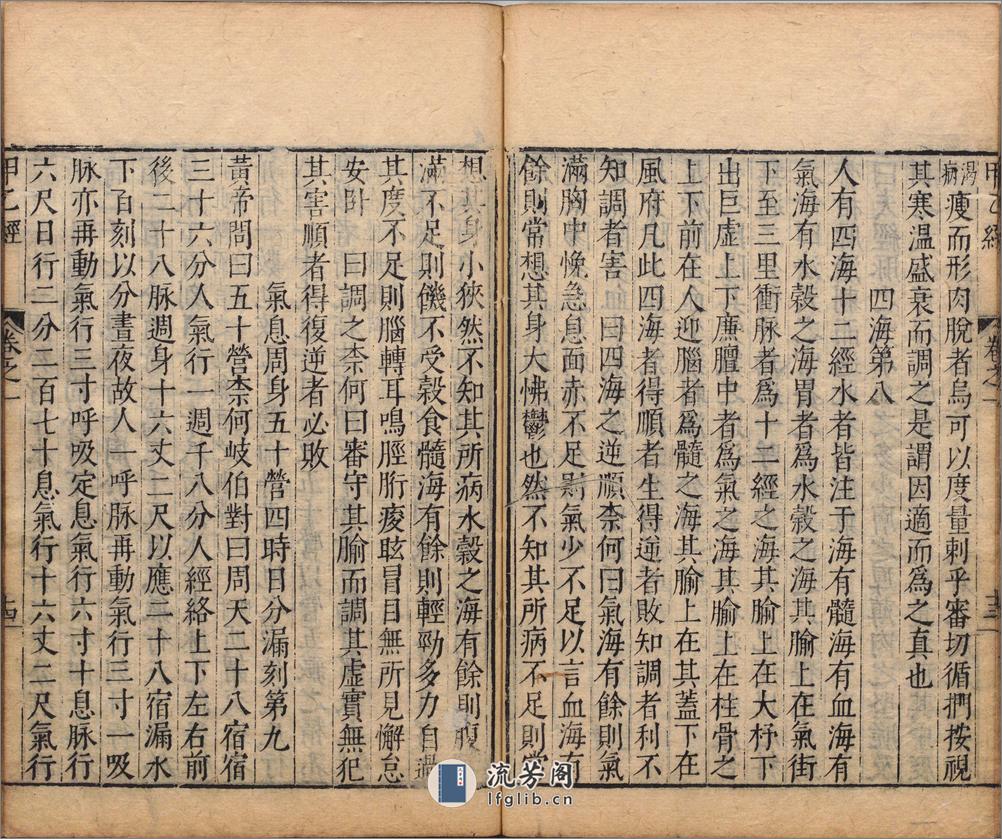 甲乙經 卷之一 十三
瘍病瘦而形肉脫者烏可以度量刺乎審切循捫按視
其寒溫盛衰而調之是謂因適而爲之真也
四海第八
人有四海十二經水者皆注于海有髓海有血海有
氣海有水穀之海胃者爲水穀之海其腧上在氣街
下至三里衝脉者爲十二經之海其腧上在大杼下
出巨虚上下廉膻中者爲氣之海其腧上在柱骨之
上下前在人迎腦者爲髓之海其腧上在其蓋下在
風府凡此四海者得順者生得逆者敗知調者利不
知調者害 曰四海之逆順柰何曰氣海有餘則氣
滿胸中悗急息面赤不足則氣少不足以言血海有
餘則常想其身大怫鬱也然不知其所病不足則常
想其身小狹然不知其所病水穀之海有餘則腹
滿不足則饑不受穀食髓海有餘則輕勁多力自過
其度不足則腦轉耳鳴脛胻痠眩冒目無所見懈怠
安卧 曰調之柰何曰審守其腧而調其虚實無犯
其害順者得復逆者必敗
氣息周身五十營四時日分漏刻第九
黃帝問曰五十營柰何岐伯對曰周天二十八宿宿
三十六分人氣行一週千八分人經絡上下左右前
後二十八脉週身十六丈二尺以應二十八宿漏水
下百刻以分晝夜故人一呼脉再動氣行三寸一吸
脉亦再動氣行三寸呼吸定息氣行六寸十息脉行
六尺日行二分二百七十息氣行十六丈二尺氣行
甲乙經 卷之一 十四
流芳阁
lfglib.cn